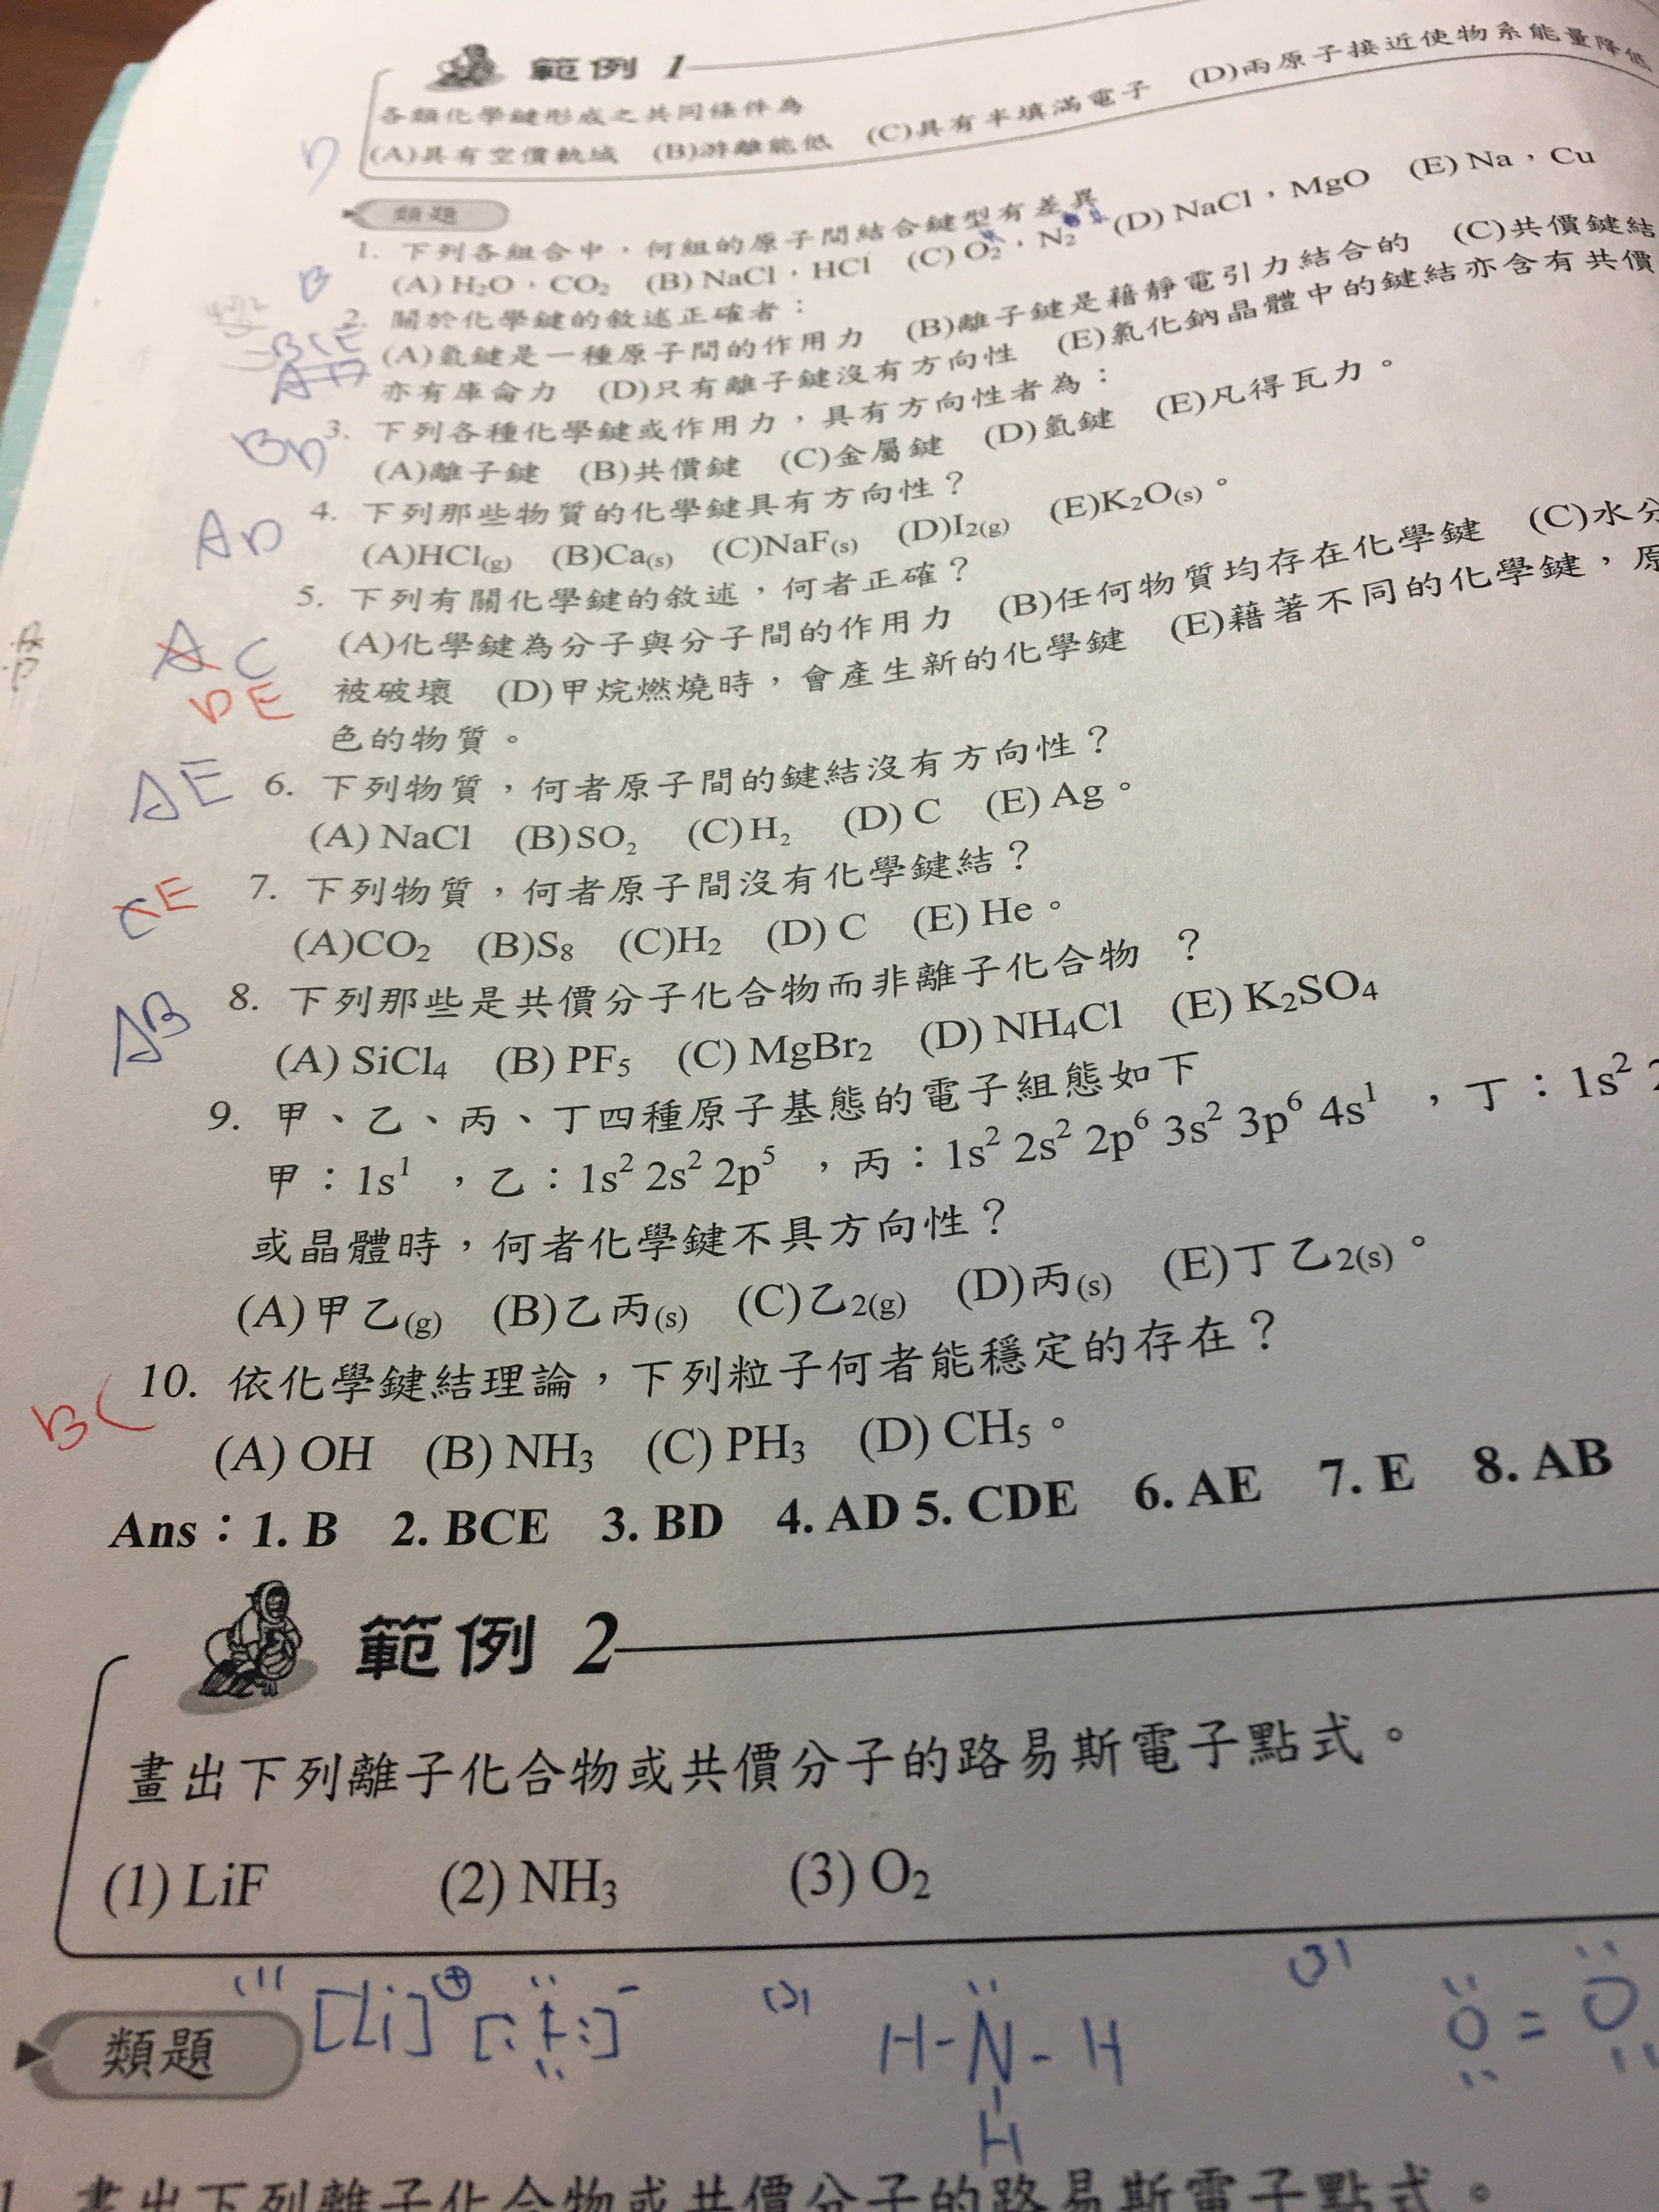 範例 1
各類化學鍵形成之共同條件為
D (A)具有空價軌域 (B)游離能低 (C)具有半填滿電子 (D)兩原子接近使物系能量降低
類題
1. 下列各組合中，何組的原子間結合鍵型有差異
B (A) H₂O，CO₂ (B) NaCl，HCl (C) O₂，N₂ (D) NaCl，MgO (E) Na，Cu
2. 關於化學鍵的敘述正確者：
BCE (A)氫鍵是一種原子間的作用力 (B)離子鍵是藉靜電引力結合的 (C)共價鍵結
AD 亦有庫侖力 (D)只有離子鍵沒有方向性 (E)氯化鈉晶體中的鍵結亦含有共價
BD 3. 下列各種化學鍵或作用力，具有方向性者為：
(A)離子鍵 (B)共價鍵 (C)金屬鍵 (D)氫鍵 (E)凡得瓦力。
AD 4. 下列那些物質的化學鍵具有方向性？
(A)HCl(g) (B)Ca(s) (C)NaF(s) (D)I₂(g) (E)K₂O(s)。
5. 下列有關化學鍵的敘述，何者正確？
A C (A)化學鍵為分子與分子間的作用力 (B)任何物質均存在化學鍵 (C)水分
DE 被破壞 (D)甲烷燃燒時，會產生新的化學鍵 (E)藉著不同的化學鍵，原
色的物質。
AE 6. 下列物質，何者原子間的鍵結沒有方向性？
(A) NaCl (B)SO₂ (C)H₂ (D) C (E) Ag。
C E 7. 下列物質，何者原子間沒有化學鍵結？
(A)CO₂ (B)S₈ (C)H₂ (D) C (E) He。
AB 8. 下列那些是共價分子化合物而非離子化合物 ？
(A) SiCl₄ (B) PF₅ (C) MgBr₂ (D) NH₄Cl (E) K₂SO₄
9. 甲、乙、丙、丁四種原子基態的電子組態如下
甲：1s¹ ，乙：1s² 2s² 2p⁵ ，丙：1s² 2s² 2p⁶ 3s² 3p⁶ 4s¹ ，丁：1s²
或晶體時，何者化學鍵不具方向性？
(A)甲乙(g) (B)乙丙(s) (C)乙₂(g) (D)丙(s) (E)丁乙₂(s)。
BC 10. 依化學鍵結理論，下列粒子何者能穩定的存在？
(A) OH (B) NH₃ (C) PH₃ (D) CH₅。
Ans：1. B 2. BCE 3. BD 4. AD 5. CDE 6. AE 7. E 8. AB
範例 2
畫出下列離子化合物或共價分子的路易斯電子點式。
(1) LiF (2) NH₃ (3) O₂
(1) [Li]⁺ [:F:]⁻ (2) H-N-H (3) O=O
H
類題
1. 畫出下列離子化合物或共價分子的路易斯電子點式。